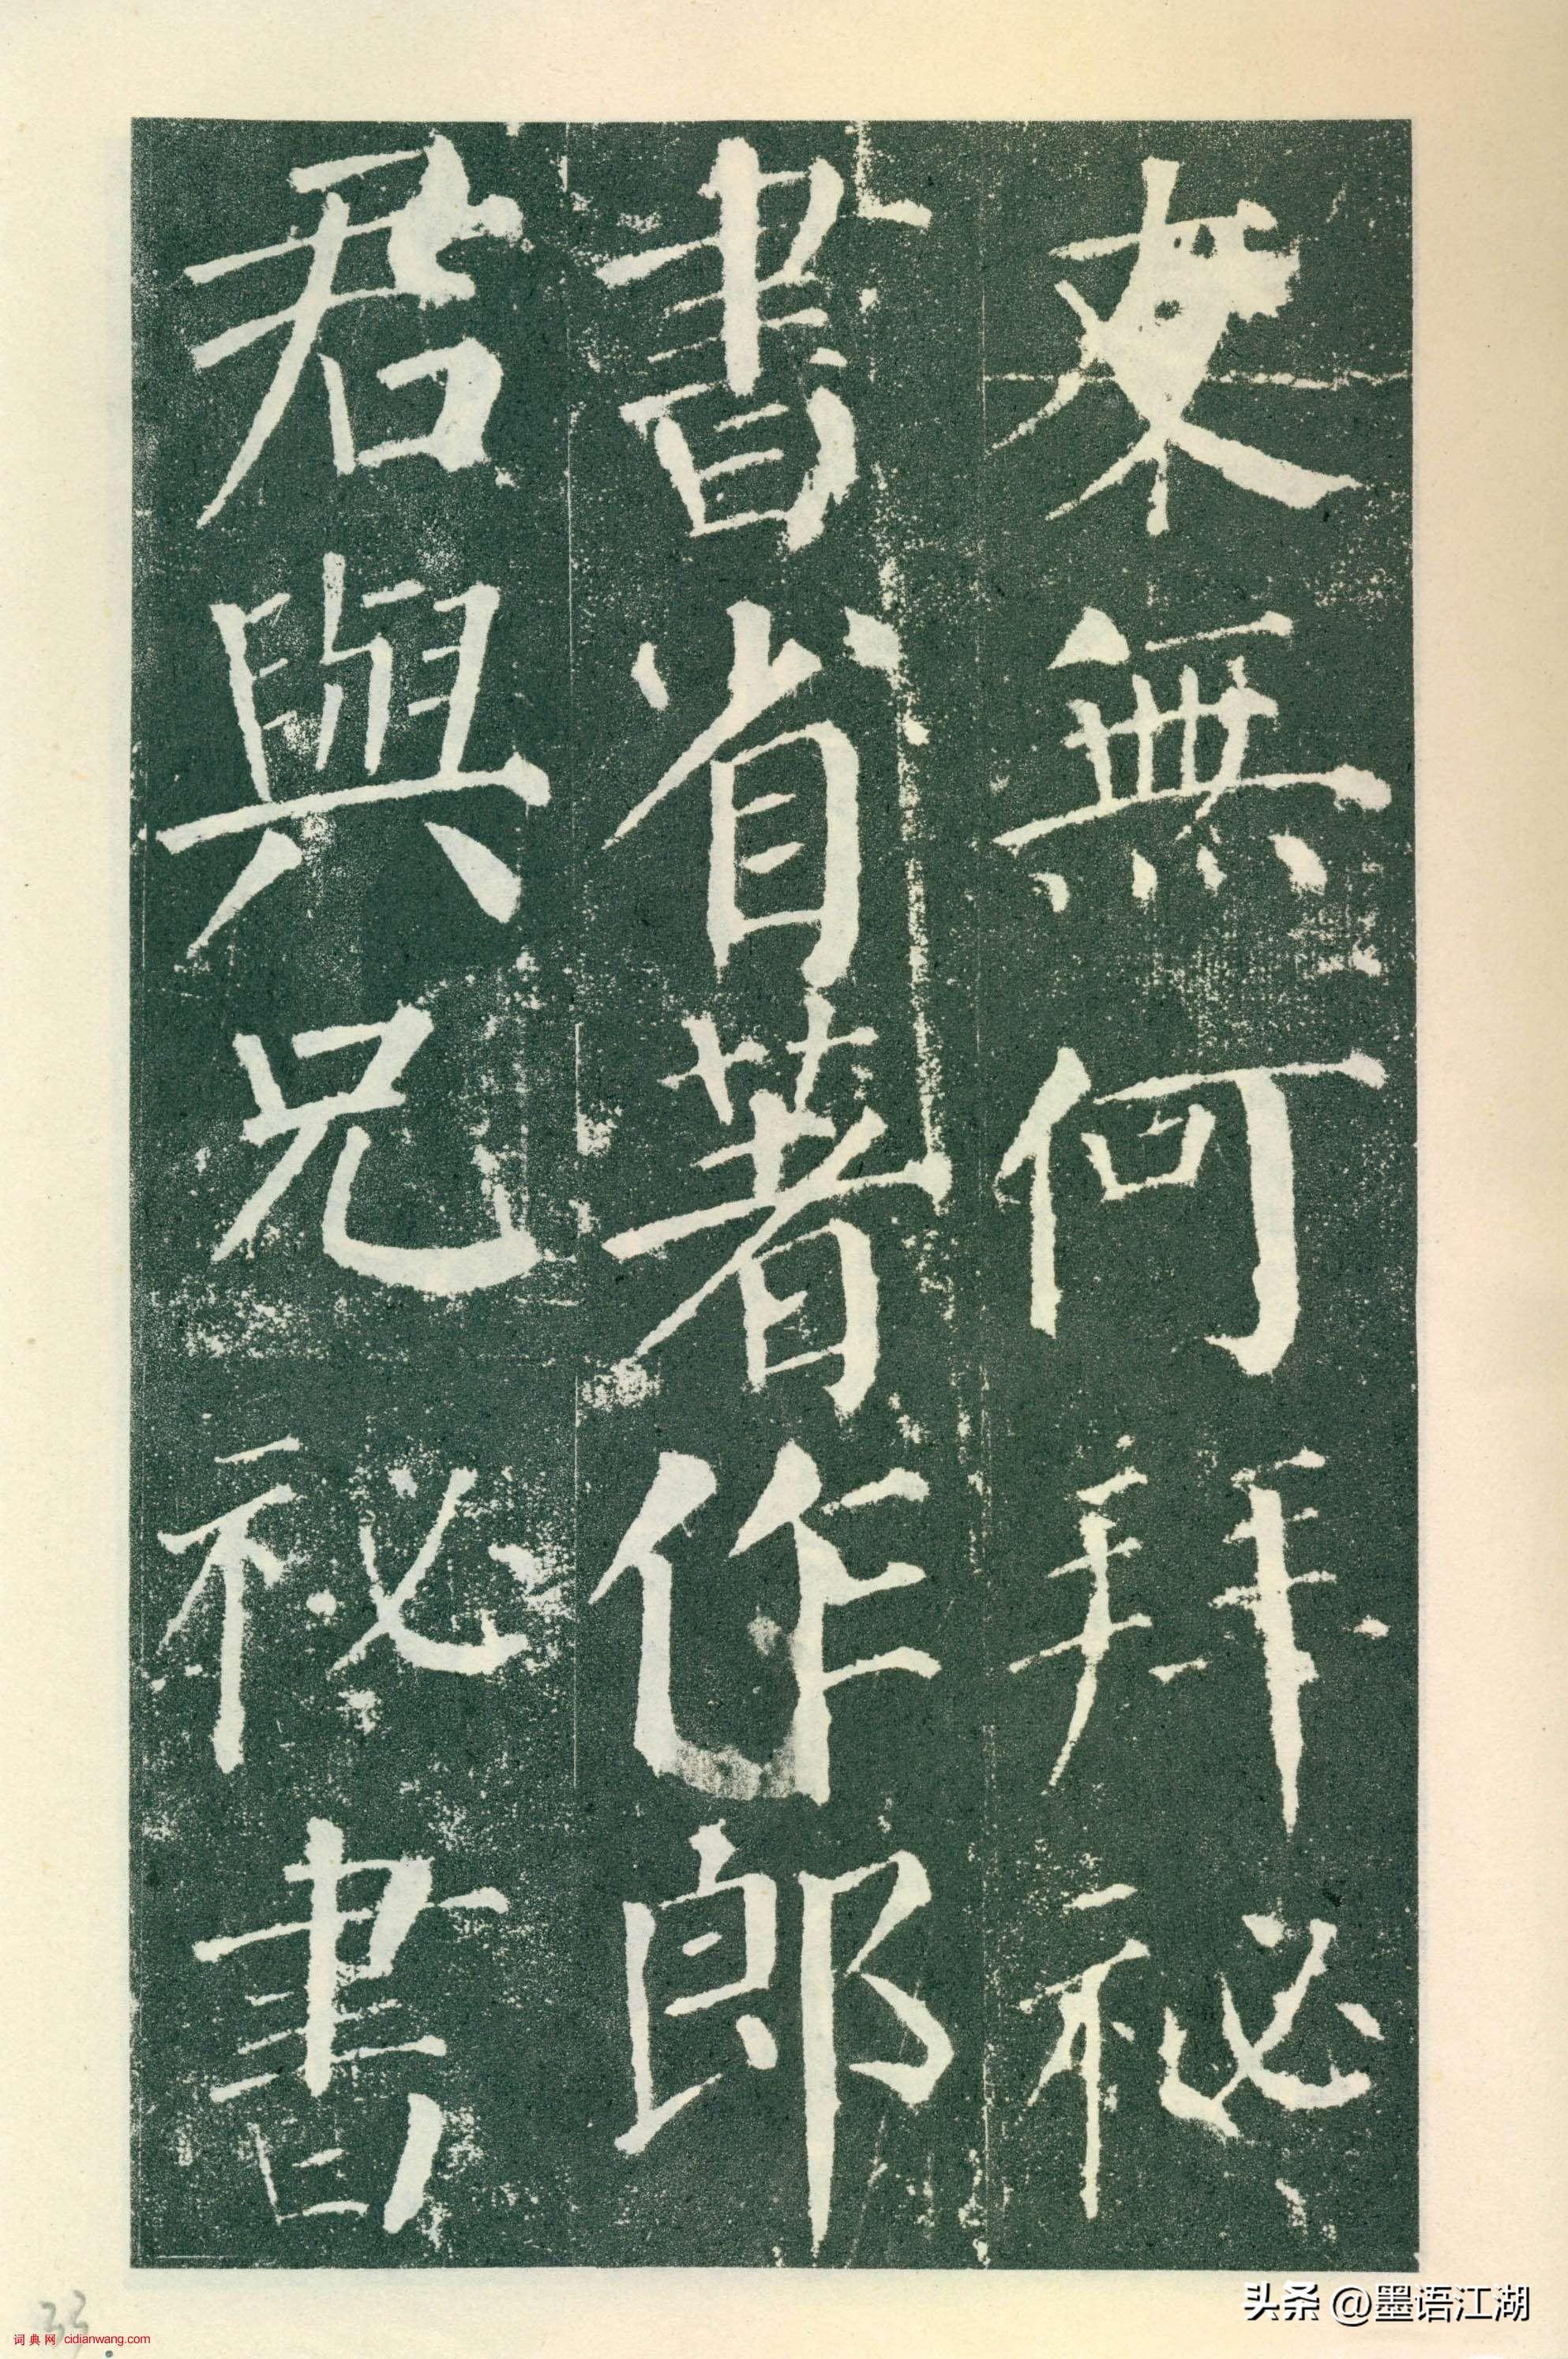 友無何拜祕
書省著作郎
君與兄祕書
头条 @墨语江湖
词典网 cidianwang.com
33